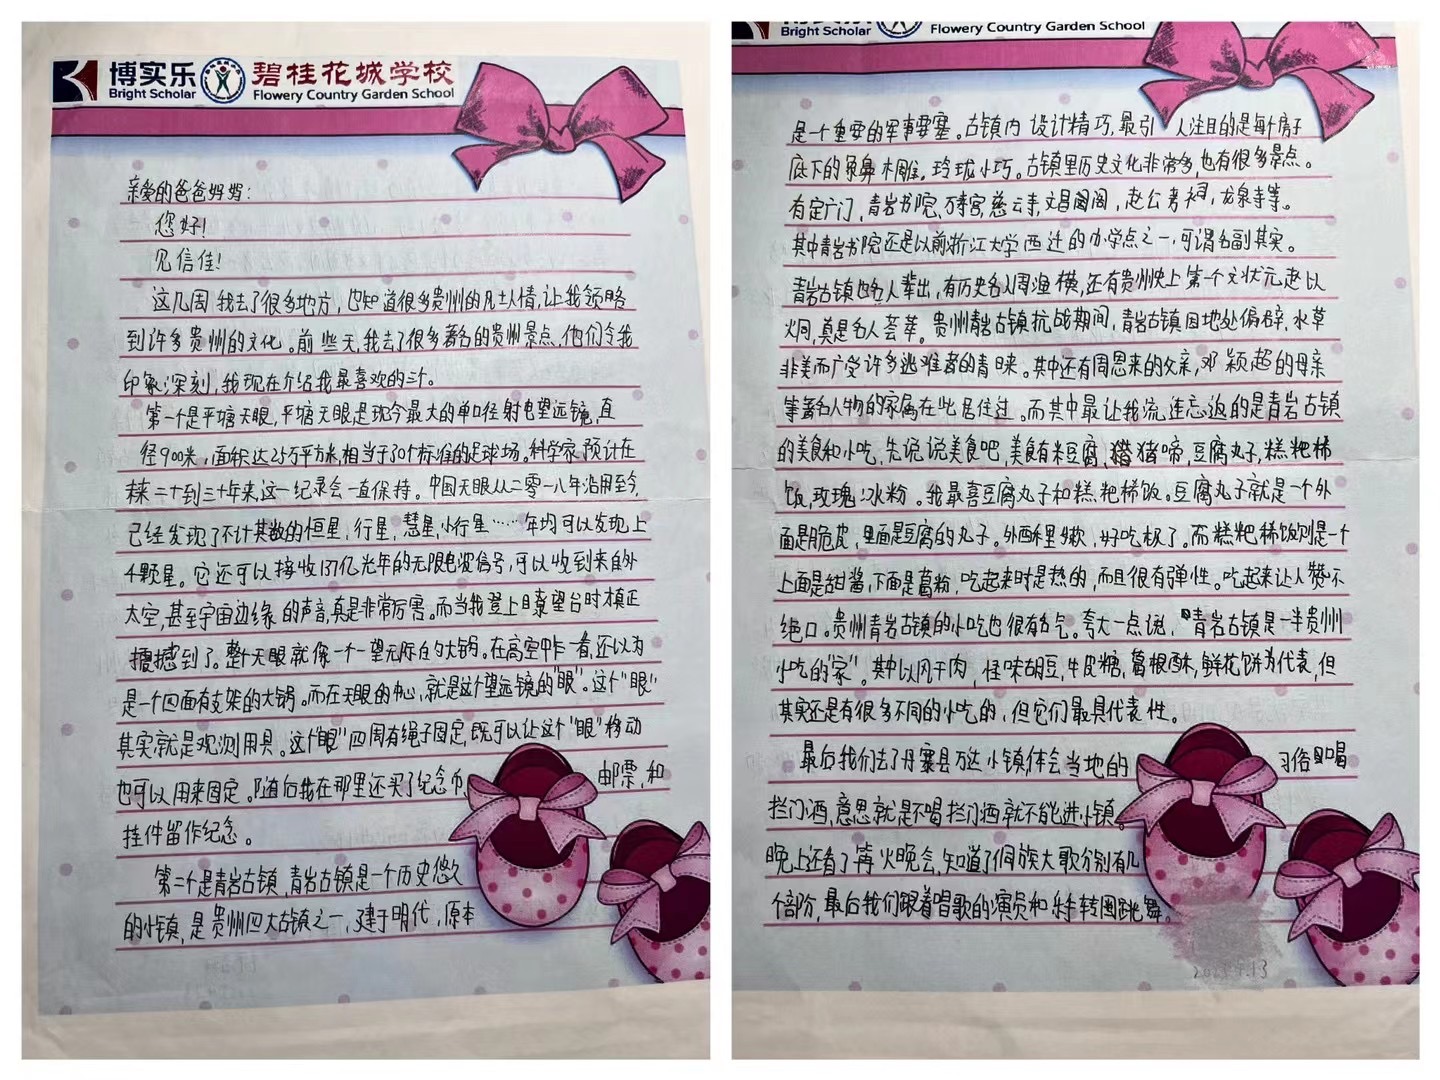 博实乐
Bright Scholar
碧桂花城学校
Flowery Country Garden School
亲爱的爸爸妈妈:
您好!
见信佳!
这几周我去了很多地方,也知道很多贵州的风土人情,让我领略
到许多贵州的文化。前些天,我去了很多著名的贵州景点,他们令我
印象深刻,我现在介绍我最喜欢的三个。
第一个是平塘天眼,平塘天眼是现今最大的单口径射电望远镜,直
径900米,面积达25万平方米,相当于30个标准的足球场。科学家预计在
未来二十到三十年来,这一纪录会一直保持。中国天眼从二零一八年沿用至今,
已经发现了不计其数的恒星,行星,慧星,小行星……年均可以发现上
千颗星。它还可以接收137亿光年的无限电波信号,可以收到来自外
太空,甚至宇宙边缘的声音,真是非常厉害。而当我登上目寮望台时才真正
震撼到了。整个天眼就像一个一望无际白勺大锅。在高空中乍一看,还以为
是一个四面有支架的大锅。而在天眼的中心,就是这个望远镜的"眼"。这个"眼"
其实就是观测用具。这个"眼"四周有绳子固定,既可以让这个"眼"移动
也可以用来固定。随后我在那里还买了纪念币 邮票,和
挂件留作纪念。
第二个是青岩古镇,青岩古镇是一个历史悠久
的小镇,是贵州四大古镇之一,建于明代,原本
Bright Scholar
Flowery Country Garden School
是一个重要的军事要塞。古镇内设计精巧,最引人注目的是每个房子
底下的象鼻木雕。玲珑小巧。古镇里历史文化非常多,也有很多景点。
有定广门,青岩书院,万寿宫,慈云寺,文昌阁阁,赵公专祠,龙泉寺等。
其中青岩书院还是以前浙江大学西迁的办学点之一,可谓名副其实。
青岩古镇也名人辈出,有历史名人周渔横,还有贵州史上第一个文状元赵以
炯,真是名人荟萃。贵州青岩古镇抗战期间,青岩古镇因地处偏辟,水草
非美而广受许多逃难者的青睐。其中还有周恩来的父亲,邓颖超的母亲
等著名人物的家属在此居住过。而其中最让我流连忘返的是青岩古镇
的美食和小吃,先说说美食吧,美食有米豆腐,猪啼,豆腐丸子,糕粑稀
饭,玫瑰冰粉。我最喜豆腐丸子和糕粑稀饭。豆腐丸子就是一个外
面是脆皮,里面是豆腐的丸子。外酉禾里嫩,好吃极了。而糕粑稀饭则是一个
上面是甜酱,下面是葛粉,吃起来时是热的,而且很有弹性。吃起来让人赞不
绝口。贵州青岩古镇的小吃也很有名气。夸大一点说,"青岩古镇是一半贵州
小吃的"家"。其中以风干肉,怪味胡豆,牛皮糖,葛根酥,鲜花饼为代表,但
其实还是有很多不同的小吃的,但它们最具代表性。
最后我们去了丹寨县万达小镇,体会当地的 习俗即喝
拦门酒,意思就是不喝拦门酒就不能进小镇。
晚上还看了篝火晚会,知道了侗族大歌分别有几
个部分,最后我们跟着唱歌的演员和 转圈跳舞。